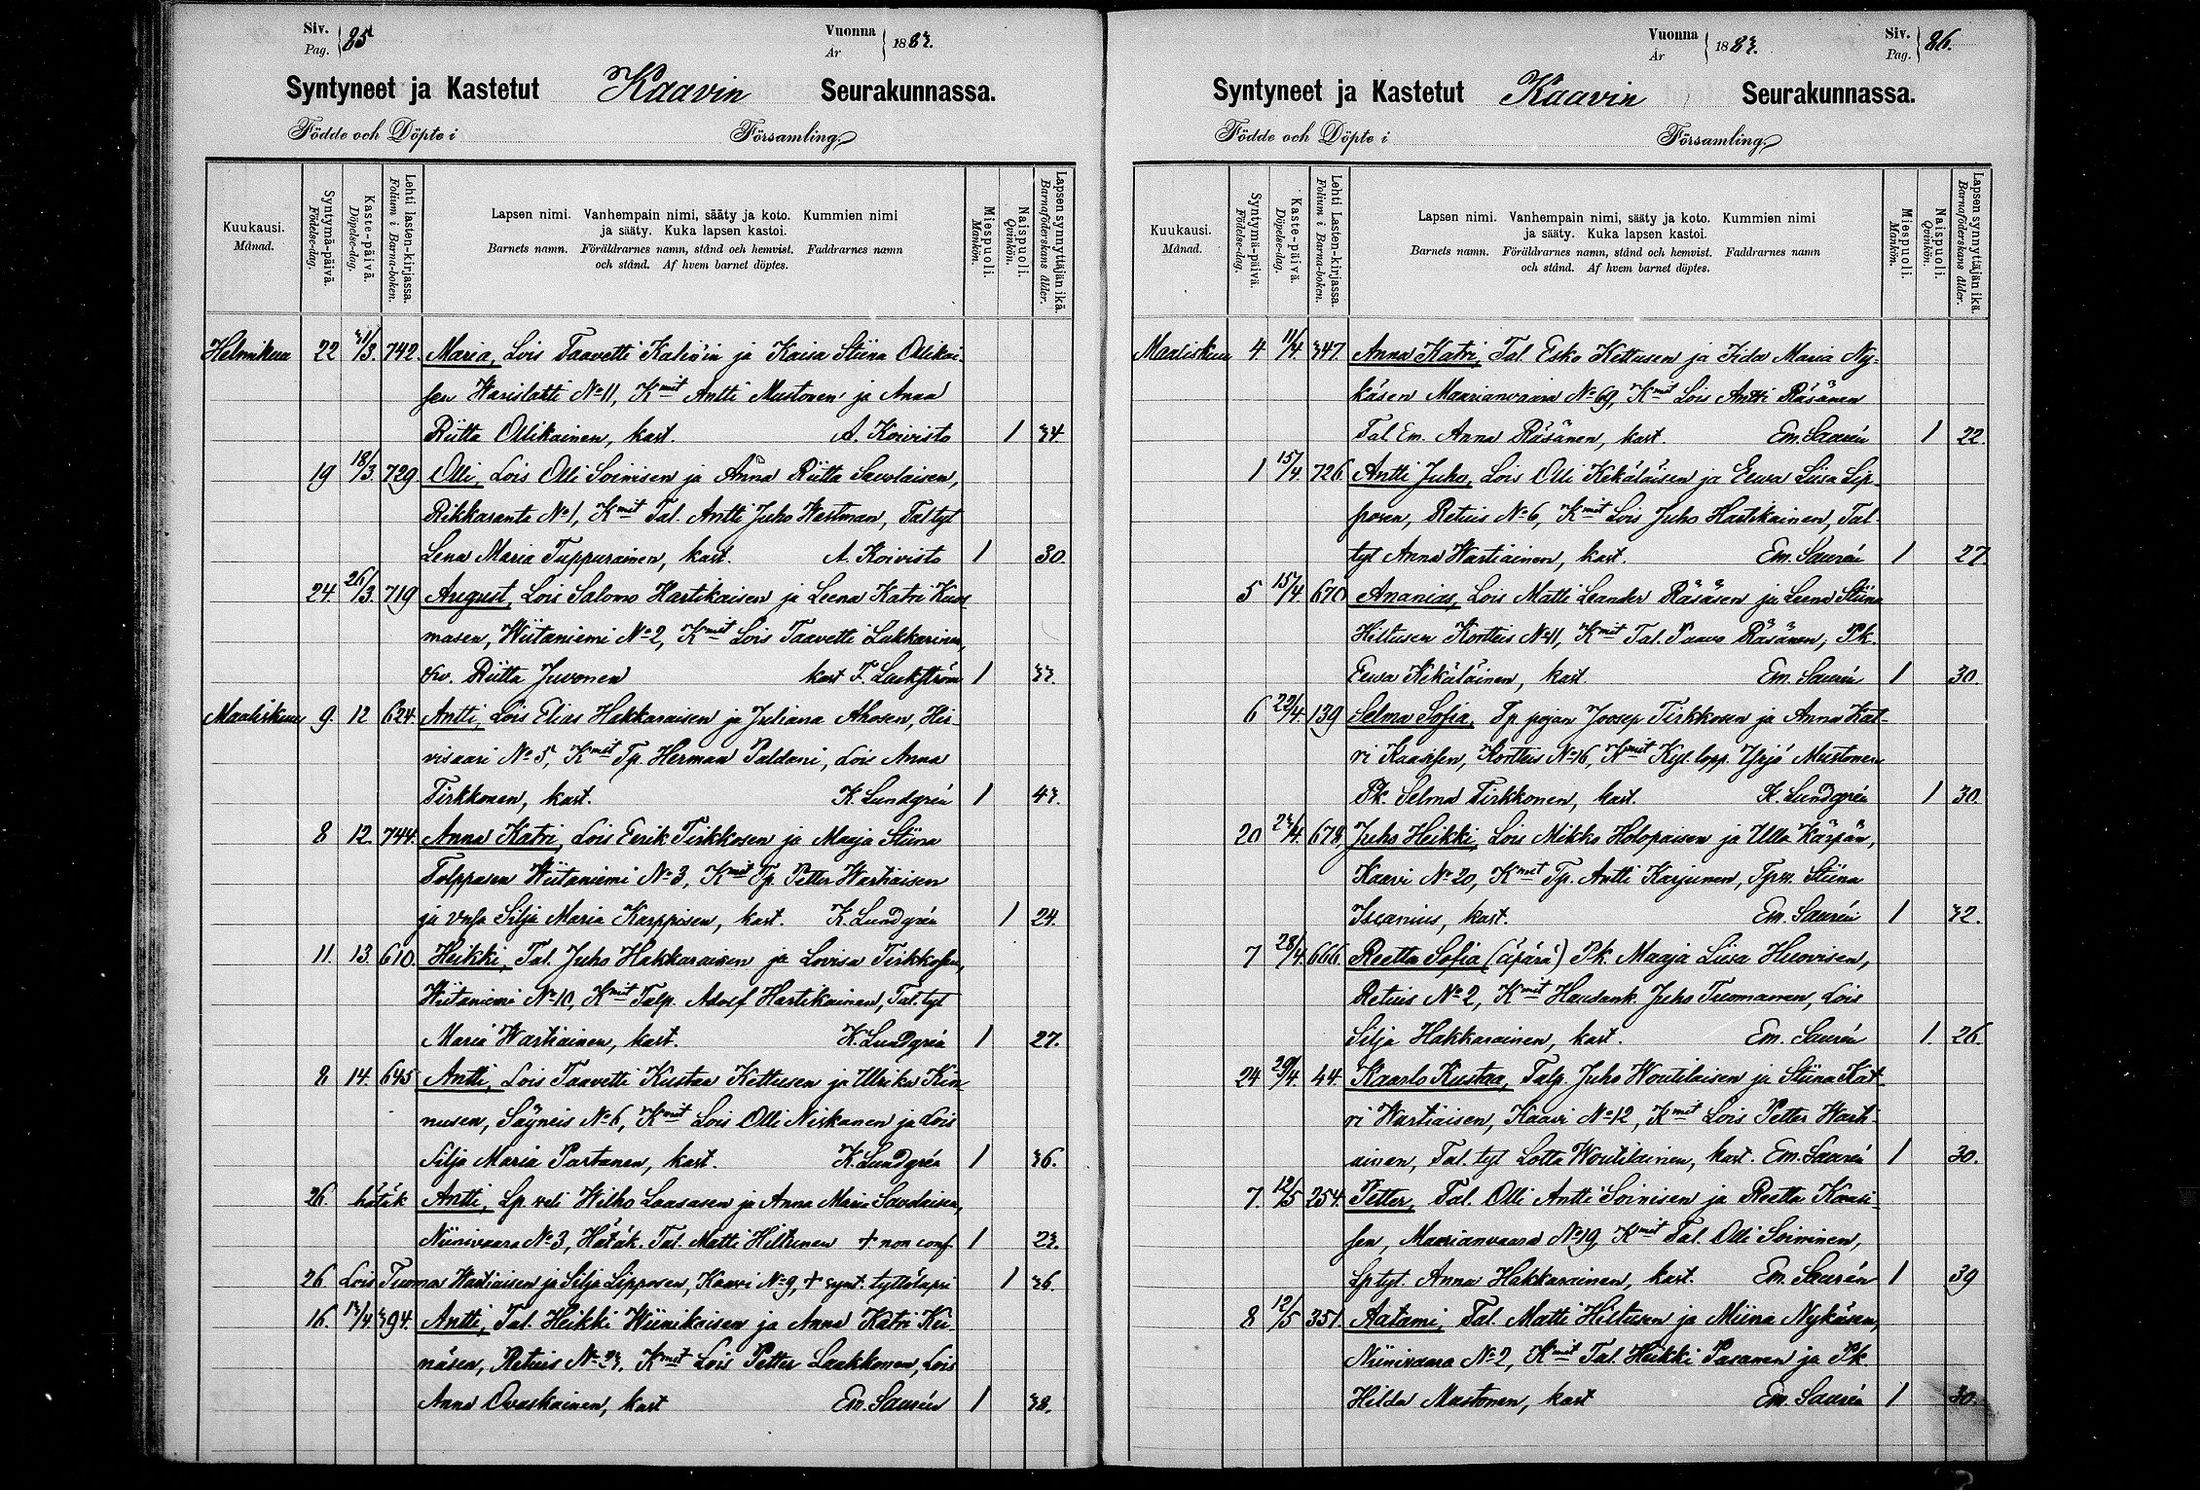 Siv. Pag. 85
Vuonna År 1883.
Syntyneet ja Kastetut Kaavin Seurakunnassa.
Födde och Döpte i Församling
Kuukausi. Månad.
Syntymä-päivä. Födelse-dag.
Kaste-päivä. Döpelse-dag.
Lehti lasten-kirjassa. Folium i Barna-boken.
Lapsen nimi. Vanhempain nimi, sääty ja koto. Kummien nimi
ja sääty. Kuka lapsen kastoi.
Barnets namn. Föräldrarnes namn, stånd och hemvist. Faddrarnes namn
och stånd. Af hvem barnet döptes.
Miespuoli. Mankön.
Naispuoli. Qvinkön.
Lapsen synnyttäjän ikä. Barnaföderskans ålder.
Helmikuu 22 31/3. 742 Maria, Lois Taavetti Kaliöin ja Kaisa Stiina Ollikai
sen Waristatti No 11, Kmit Antti Mustonen ja Anna
Riitta Ollikainen, kast. A. Koivisto 1 34
19 18/3. 729 Olli, Lois Olli Soinisen ja Anna Riitta Savolaisen,
Rikkaranta No 1, Kmit Tal. Antti Juho Wastman, Tal tyt
Lena Maria Tuppurainen, kast. A. Koivisto 1 30.
24. 26/3. 719 August, Lois Salomo Hartikaisen ja Leena Katri Kuos
masen, Wiitaniemi No 2, Kmit Lois Taavetti Lukkarinen,
Riitta Juvonen kast F. Lackström 1 33.
Maaliskuu 9. 12 624. Antti, Lois Elias Hakkaraisen ja Juliana Ahosen, Hir-
visaari No 5, Kmit Tp. Herman Paldani, Lois Anna
Tirkkonen, kast. K. Lundgrén 1 43.
8 12. 744. Anna Katri, Lois Eerik Tirkkosen ja Maaja Stiina
Tolppasen Wiitaniemi No 3, Kmit Tp. Petter Wartiaisen
ja Silja Maria Karppisen, kast. K. Lundgrén 1 24.
11. 13. 610. Heikki, Tal. Juho Hakkaraisen ja Lovisa Tirkkosen,
Wiitaniemi No 10, Kmit Talp. Adolf Hartikainen, Tal. tyt
Maria Wartiainen, kast. K. Lundgrén 1 27.
8 14. 645 Antti, Lois Taavetti Kustaa Kettusen ja Ulrika Kin-
nusen, Säyneis No 6, Kmit Lois Olli Niskanen ja Lois
Silja Maria Partanen, kast. K. Lundgrén 1 36.
26. hätäk Antti, Sp. veli Wilho Laasasen ja Anna Maria Savolaisen,
Niinivaara No 3, Hätäk. Tal. Matti Hiltunen + non conf. 1 23.
26 Lois Tuomas Wartiaisen ja Silja Lipposen, Kaavi No 9, + synt. tyttölapsi 1 36.
16. 13/4. 394. Antti, Tal. Heikki Wiinikaisen ja Anna Katri Kei-
näsen, Retuis No 23, Kmit Lois Petter Laakkonen, Lois
Anna Ovaskainen, kast Em. Saurén 1 38.
Vuonna År 1883.
Siv. Pag. 86.
Syntyneet ja Kastetut Kaavin Seurakunnassa.
Födde och Döpte i Församling
Kuukausi. Månad.
Syntymä-päivä. Födelse-dag.
Kaste-päivä. Döpelse-dag.
Lehti Lasten-kirjassa. Folium i Barna-boken.
Lapsen nimi. Vanhempain nimi, sääty ja koto. Kummien nimi
ja sääty. Kuka lapsen kastoi.
Barnets namn. Föräldrarnes namn, stånd och hemvist. Faddrarnes namn
och stånd. Af hvem barnet döptes.
Miespuoli. Mankön.
Naispuoli. Qvinkön.
Lapsen synnyttäjän ikä. Barnaföderskans ålder.
Maaliskuu 4 11/4 347. Anna Katri, Tal. Esko Kettusen ja Iida Maria Ny-
käsen Maarianvaara No 69, Kmit Lois Antti Räsänen
Tal Em. Anna Räsänen, kast. Em. Saurén 1 22.
1 15/4. 726. Antti Juho, Lois Olli Kekäläisen ja Eeva Liisa Lip-
posen, Retuis No 6, Kmit Lois Juho Hartikainen, Tal-
tyt Anna Wartiainen, kast. Em. Saurén 1 27
5 15/4 670 Ananias, Lois Matti Leander Räsäsen ja Leena Stiina
Hiltusen Kortteis No 11, Kmit Tal. Paavo Räsänen, Pk.
Eeva Kekäläinen, kast. Em. Saurén 1 30.
6 22/4. 139 Selma Sofia, Tp. pojan Joosep Tirkkosen ja Anna Kat-
ri Kaasisen, Kortteis No 16, Kmit Kyt. lopp. Yrjö Mustonen
Pk. Selma Tirkkonen, kast. K. Lundgrén 1 30.
20 23/4. 678. Juho Heikki, Lois Mikko Holopaisen ja Ulla Kärpän,
Kaavi No 20, Kmit Tp. Antti Karjunen, Stiina
Iscanius, kast. Em. Saurén 1 32.
7 28/4. 666 Reetta Sofia (äpärä) Pk. Maaja Liisa Huovisen,
Retuis No 2, Kmit Hausank. Juho Tuomanen, Lois
Silja Hakkarainen, kast. Em. Saurén 1 26.
24 29/4. 44. Kaarlo Kustaa, Talp. Juho Woutilaisen ja Stiina Kat-
ri Wartiaisen, Kaavi No 12, Kmit Lois Petter Warti-
ainen, Tal. tyt Lotta Woutilainen, kast. Em. Saurén 1 30.
7. 12/5 254. Petter, Tal. Olli Antti Soinisen ja Reetta Kaasi-
sen, Maarianvaara No 19, Kmit Tal. Olli Soininen,
Sp tyt. Anna Hakkarainen, kast. Em. Saurén 1 39
8 12/5 351. Aatami, Tal. Matti Hiltusen ja Miina Nykäsen,
Niinivaara No 2, Kmit Tal. Heikki Pasanen ja Pk.
Hilda Mustonen, kast Em. Saurén 1 30.